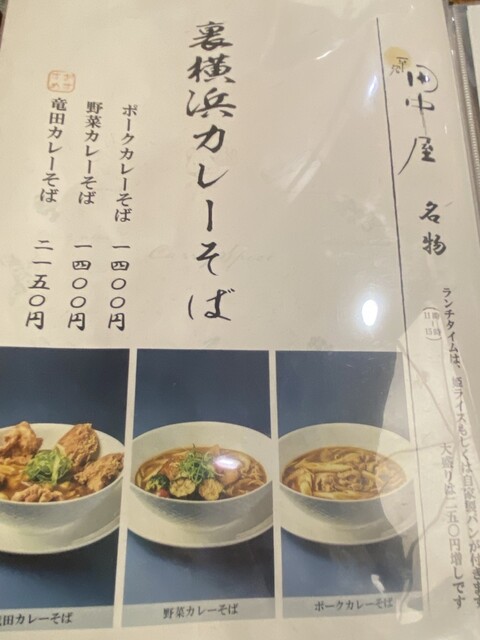 田中屋 名物
ランチタイムは、姫ライスもしくは自家製パンが付きます
(11時〜15時)
大盛りは二五〇円増しです
裏横浜カレーそば
ポークカレーそば 一四〇〇円
野菜カレーそば 一四〇〇円
おすすめ
竜田カレーそば 二一五〇円
竜田カレーそば
野菜カレーそば
ポークカレーそば